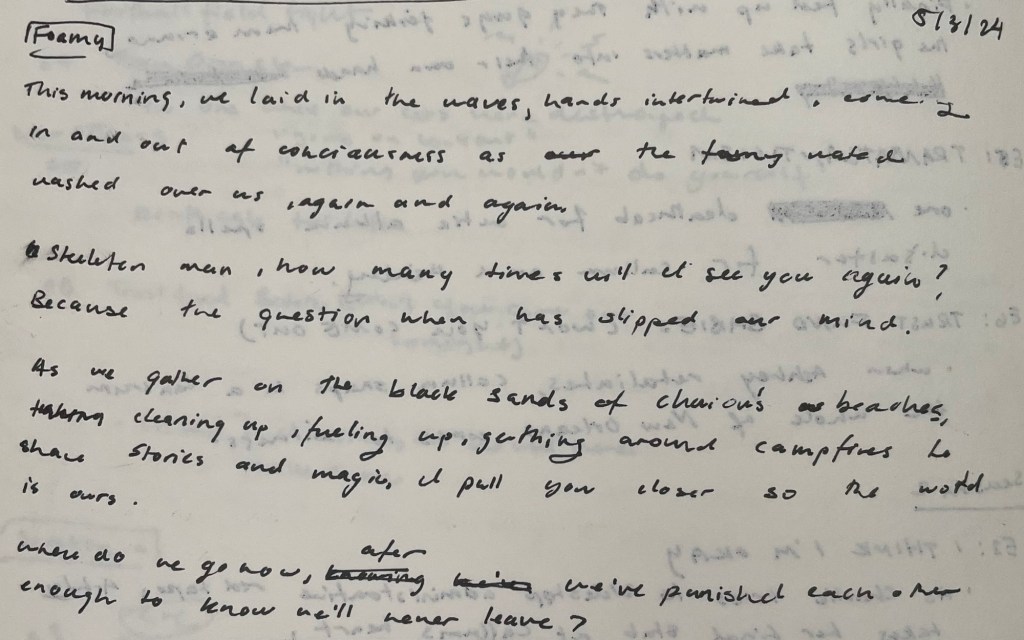 5/3/24
Foamy
This morning, we laid in the waves, hands intertwined, coming
in and out of conciousness as our the foamy water
washed over us, again and again.
Skeleton man, how many times will I see you again?
Because the question when has slipped our mind.
As we gather on the black sands of charion's beaches,
cleaning up, fueling up, gathing around campfires to
share stories and magic, I pull you closer so the world
is ours.
after
where do we go now, knowing we've punished each other
enough to know we'll never leave?